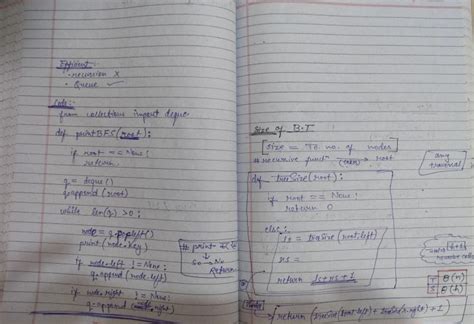 Efficient:
- recursion X
- Queue ✓
Code:
from collections import deque
def printBFS(root):
if root == None:
return
q = deque()
q.append(root)
while len(q) > 0:
node = q.popleft()
print(node.key)
if node.left != None:
q.append(node.left)
if node.right != None:
q.append(node.right)
# print
So → No
Return
Size of B.T
[size = To. no. of nodes]
# recursive funcⁿ root
any
traversal
def treeSize(root):
if root == None:
return 0
else:
ls = treeSize(root.left)
rs =
return ls+rs+1
T θ(n)
S θ(h)
return (treeSize(root.left) + treeSize(root.right) + 1)